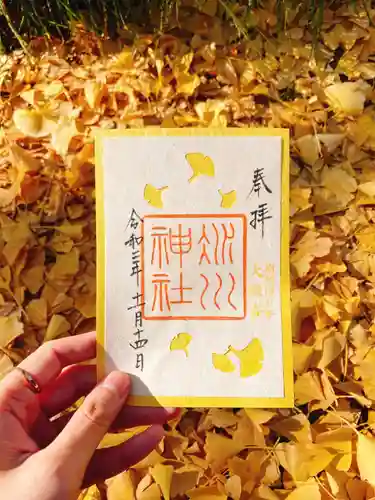 奉拝
氷川
神社
令和三年
十一月十四日